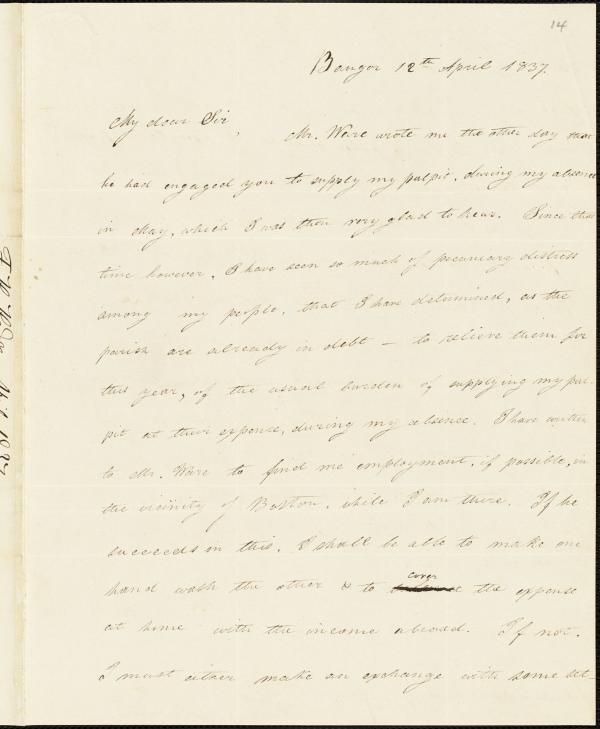 14
Bangor 12th April 1837.
My dear Sir,
Mr. Ware wrote me the other day that
he had engaged you to supply my pulpit, during my absence
in May, which I was then very glad to hear. Since that
time however, I have seen so much of pecuniary distress
among my people, that I have determined, as the
parish are already in debt — to relieve them for
this year, of the usual burden of supplying my pul-
pit at their expense, during my absence. I have written
to Mr. Ware to find me employment, if possible, in
the vicinity of Boston, while I am there. If he
succeeds in this, I shall be able to make one
hand wash the other & to cover the expense
at home with the income abroad. If not,
I must either make an exchange with some set-